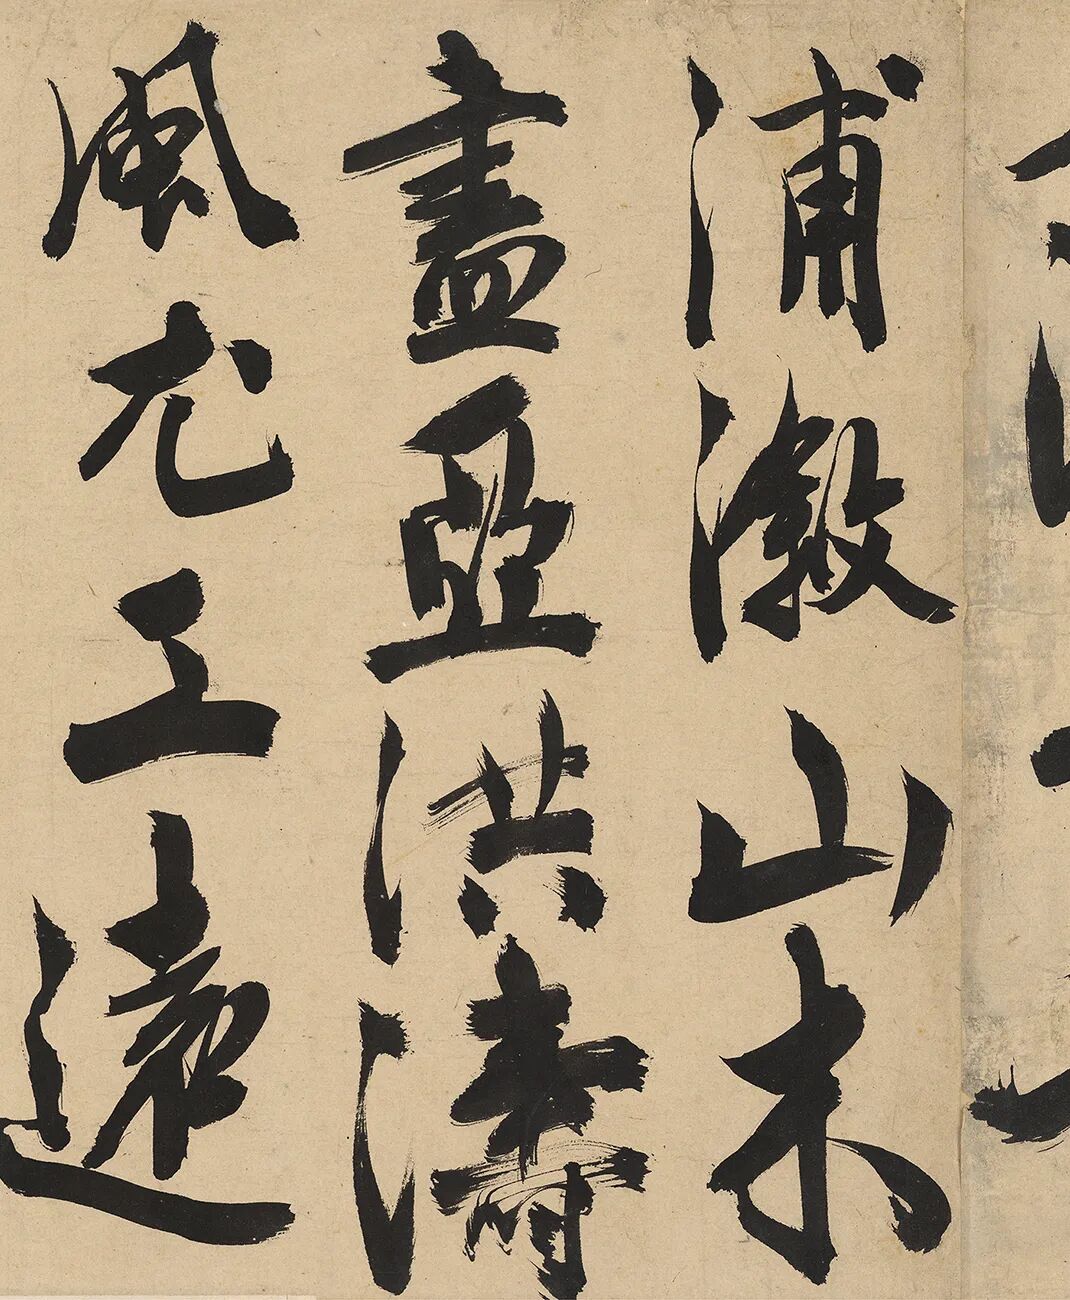 浦漵山木
盡亞洪濤
風尤工遠